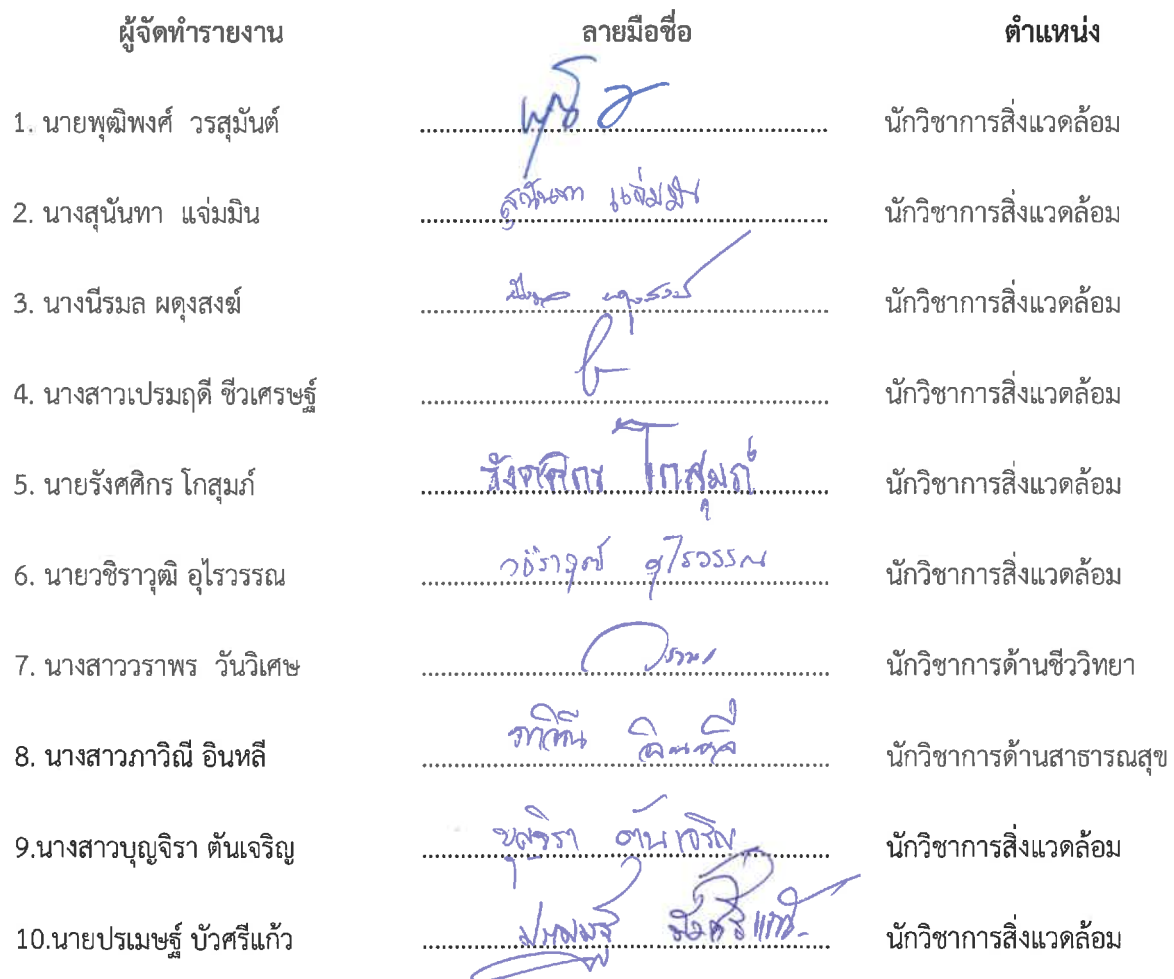 ผู้จัดทำรายงาน ลายมือชื่อ ตำแหน่ง
1. นายพุฒิพงศ์ วรสุมันต์ นักวิชาการสิ่งแวดล้อม
2. นางสุนันทา แจ่มมิน สุนันทา แจ่มมิน นักวิชาการสิ่งแวดล้อม
3. นางนีรมล ผดุงสงฆ์ นักวิชาการสิ่งแวดล้อม
4. นางสาวเปรมฤดี ชีวเศรษฐ์ นักวิชาการสิ่งแวดล้อม
5. นายรังศศิกร โกสุมภ์ รังศศิกร โกสุมภ์ นักวิชาการสิ่งแวดล้อม
6. นายวชิราวุฒิ อุไรวรรณ วชิราวุฒิ อุไรวรรณ นักวิชาการสิ่งแวดล้อม
7. นางสาววราพร วันวิเศษ นักวิชาการด้านชีววิทยา
8. นางสาวภาวิณี อินหลี ภาวิณี อินหลี นักวิชาการด้านสาธารณสุข
9.นางสาวบุญจิรา ตันเจริญ บุญจิรา ตันเจริญ นักวิชาการสิ่งแวดล้อม
10.นายปรเมษฐ์ บัวศรีแก้ว ปรเมษฐ์ บัวศรีแก้ว นักวิชาการสิ่งแวดล้อม